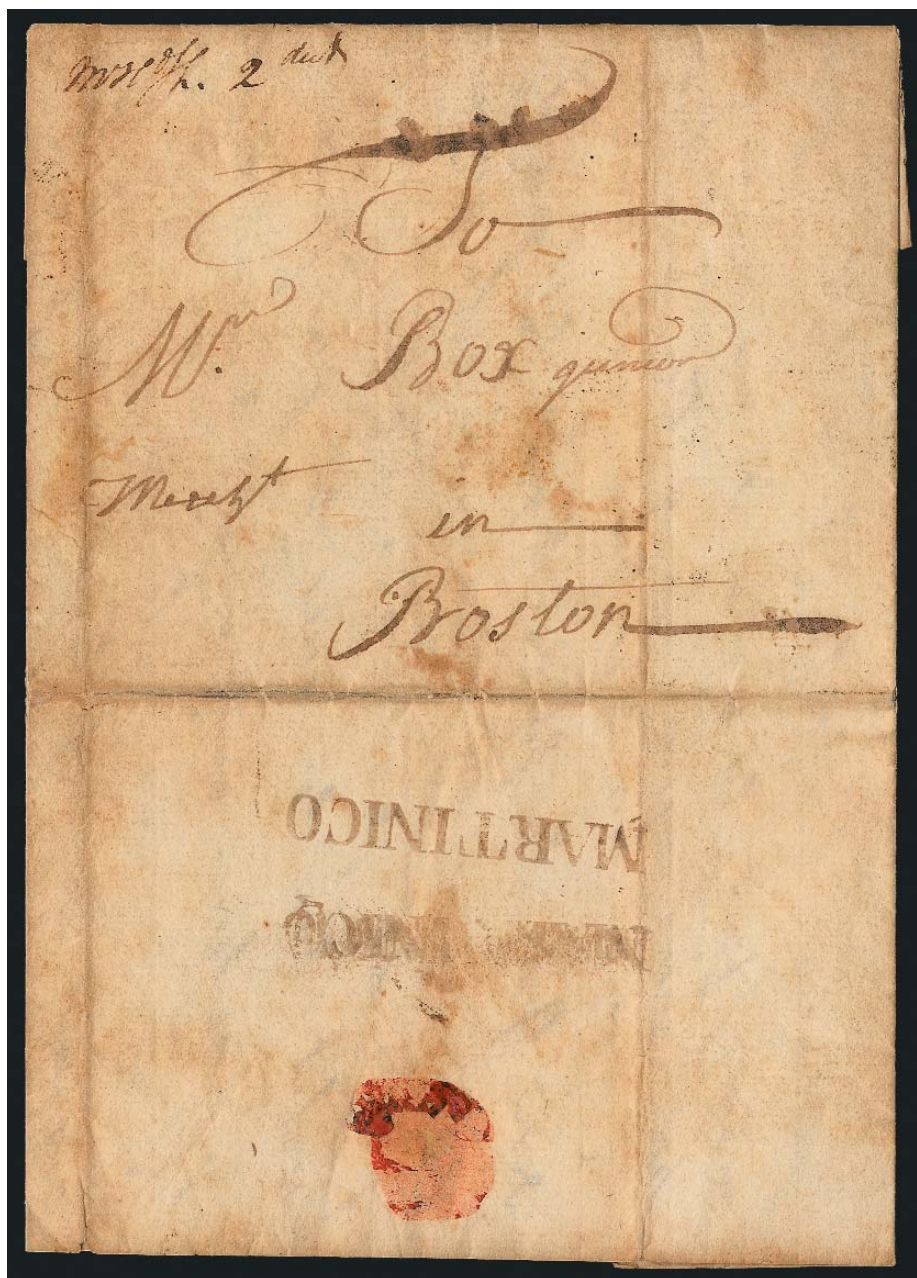 2 dwt
To
Mr. Box junior
Mercht
in
Boston
MARTINICO
MARTINICO